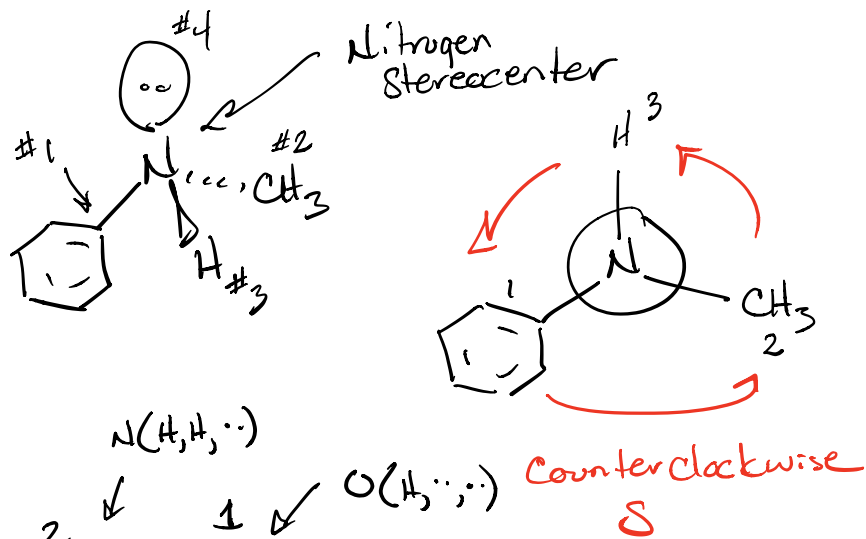 #4
Nitrogen
Stereocenter
#1
N
#2
CH3
H
#3
H 3
N
1
CH3
2
N(H,H,··)
O(H,··,··)
Counterclockwise
S
2
1